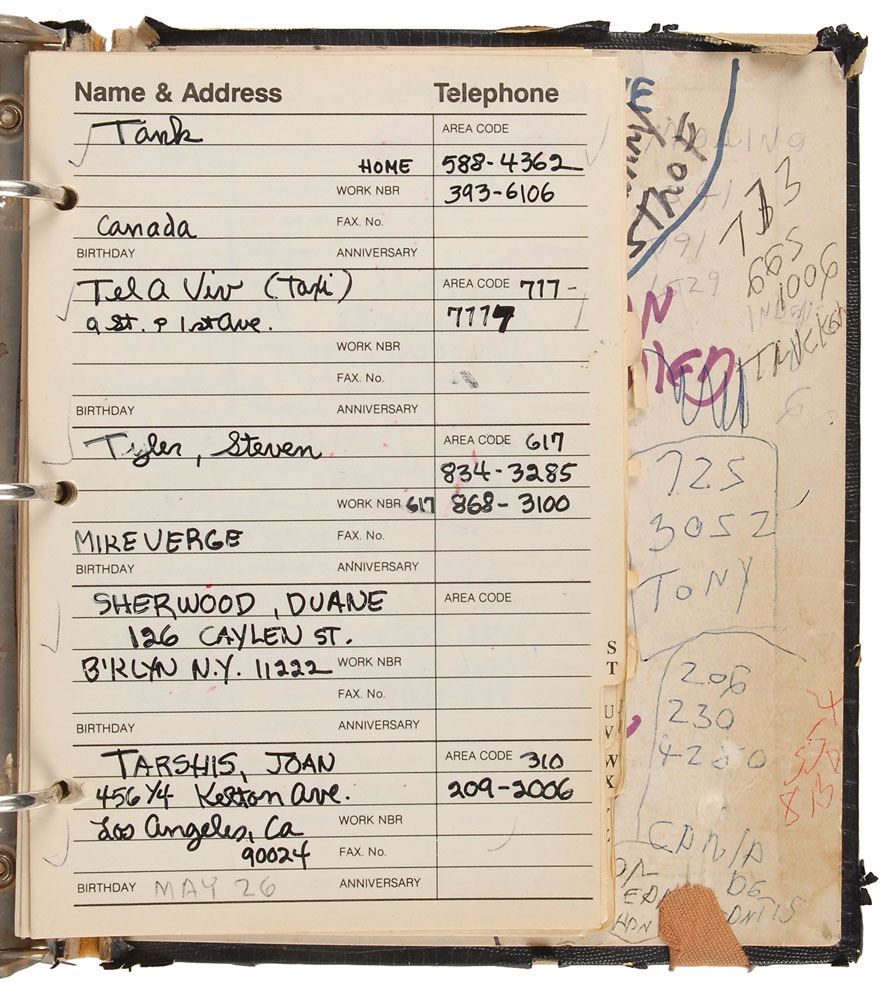 Name & Address Telephone
Tank AREA CODE
HOME 588-4362
WORK NBR 393-6106
Canada FAX. No.
BIRTHDAY ANNIVERSARY
Tel a Viv (Taxi) AREA CODE 717-
9 St. & 1st Ave. 7777
WORK NBR
FAX. No.
BIRTHDAY ANNIVERSARY
Tyler, Steven AREA CODE 617
834-3285
WORK NBR 617 868-3100
MIKE VERGE FAX. No.
BIRTHDAY ANNIVERSARY
SHERWOOD, DUANE AREA CODE
126 CAYLEN ST.
B'KLYN N.Y. 11222 WORK NBR
FAX. No.
BIRTHDAY ANNIVERSARY
TARSHIS, JOAN AREA CODE 310
456 1/4 Kelton Ave. 209-2006
Los Angeles, Ca WORK NBR
90024 FAX. No.
BIRTHDAY MAY 26 ANNIVERSARY
S
T
UV
WX
713
665
1006
725
3052
TONY
206
230